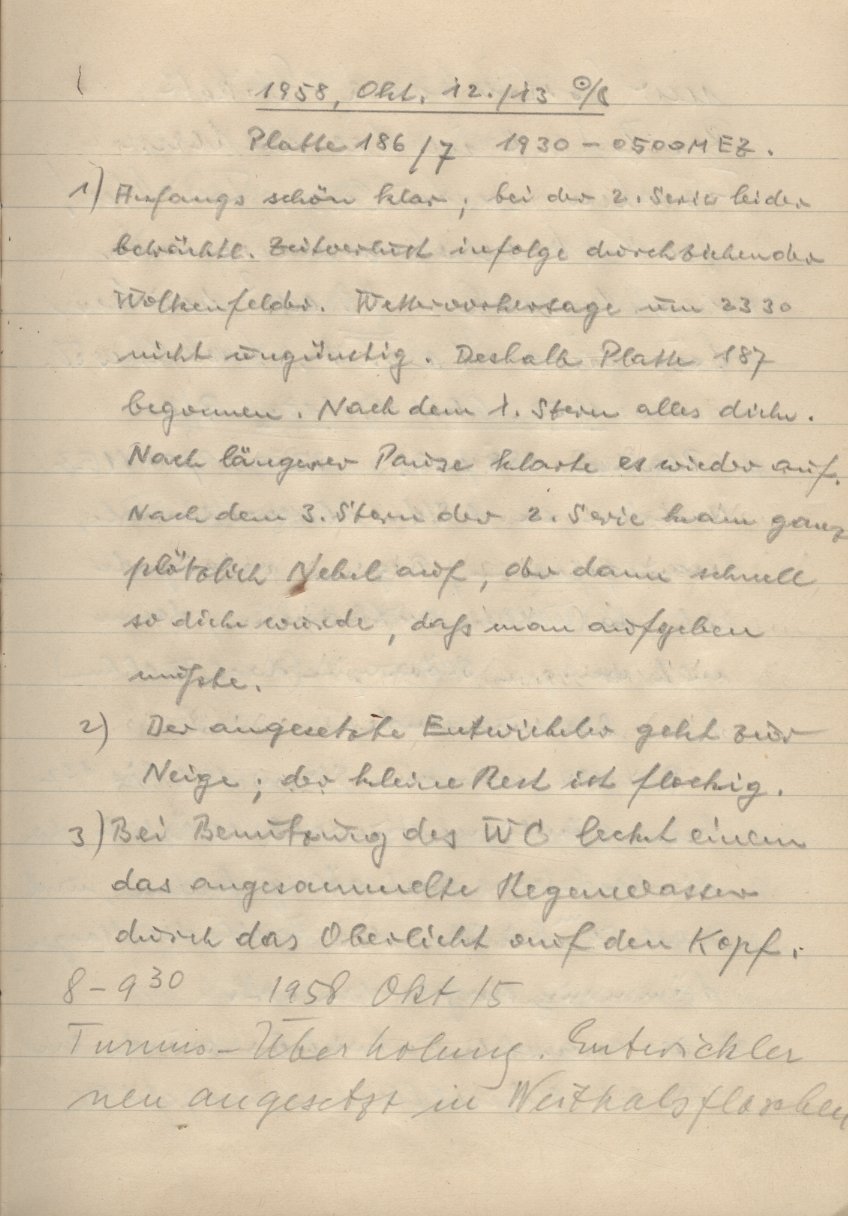 1958, Okt. 12./13 ☉/☾
Platte 186/7 1930 – 0500 MEZ.
1) Anfangs schön klar; bei der 2. Serie leider
beträchtl. Zeitverlust infolge durchziehender
Wolkenfelder. Wettervorhersage um 2330
nicht ungünstig. Deshalb Platte 187
begonnen. Nach dem 1. Stern alles dicht.
Nach längerer Pause klarte es wieder auf.
Nach dem 3. Stern der 2. Serie kam ganz
plötzlich Nebel auf, der dann schnell
so dicht wurde, daß man aufgeben
mußte.
2) Der angesetzte Entwickler geht zur
Neige; der kleine Rest ist flockig.
3) Bei Benutzung des WC leckt einem
das angesammelte Regenwasser
durch das Oberlicht auf den Kopf.
8 – 9 30 1958 Okt 15
Turnus-Überholung. Entwickler
neu angesetzt in Weithalsflaschen